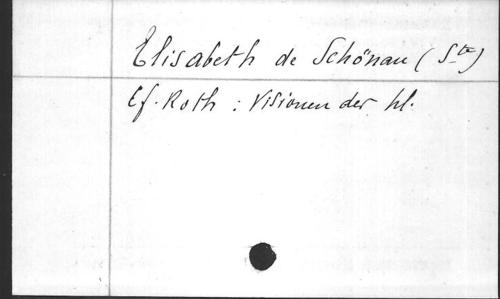 Elisabeth de Schönau (Ste)
Cf. Roth : Visionen der hl.